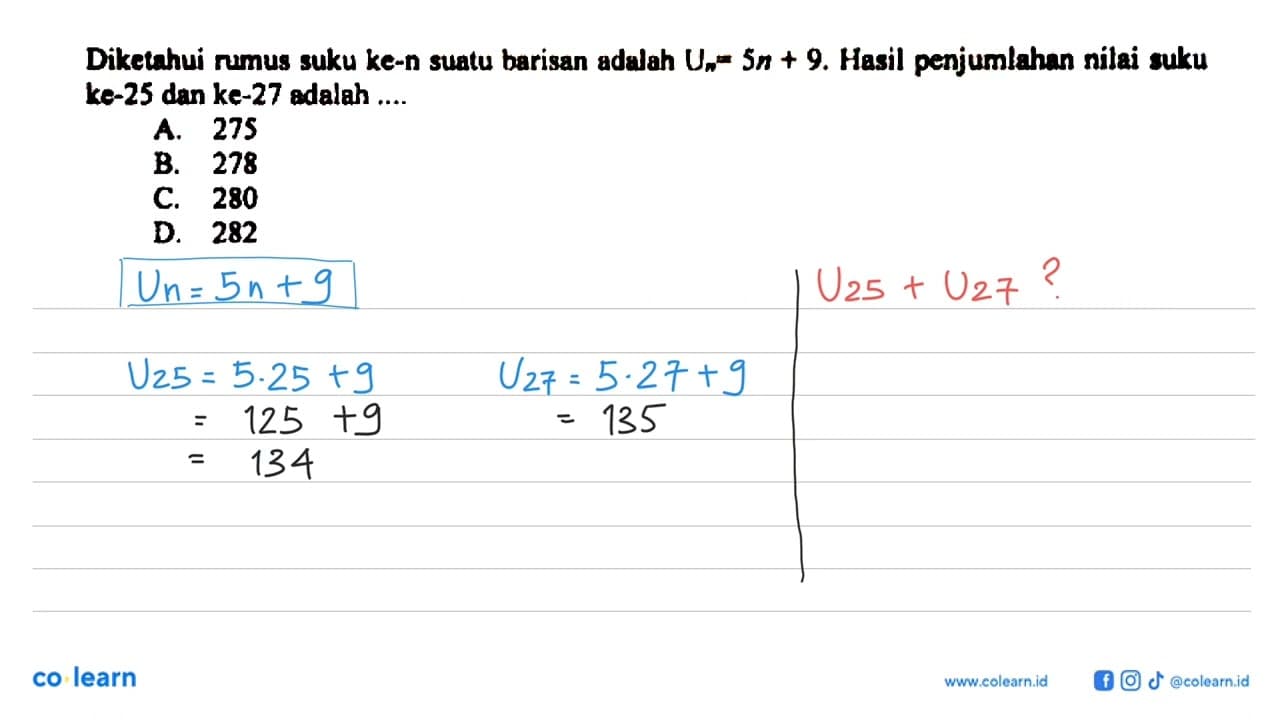 Diketahui rumus suku ke-n suatu barisan adalah Uₙ= 5n + 9. Hasil penjumlahan nilai suku
ke-25 dan ke-27 adalah ....
A. 275
B. 278
C. 280
D. 282
Un = 5n + 9
U25 + U27 ?
U25 = 5.25 + 9
U27 = 5.27 + 9
= 125 + 9
= 135
= 134
co learn
www.colearn.id
@colearn.id